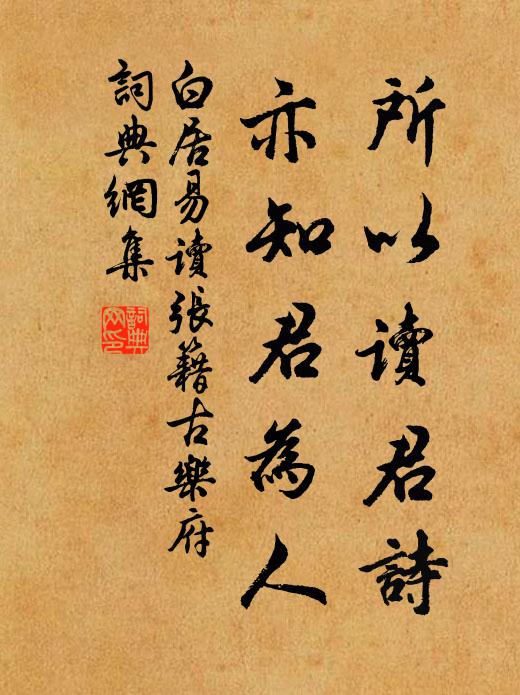 所以讀君詩
亦知君為人
白居易讀張籍古樂府
詞典網集
詞典網印